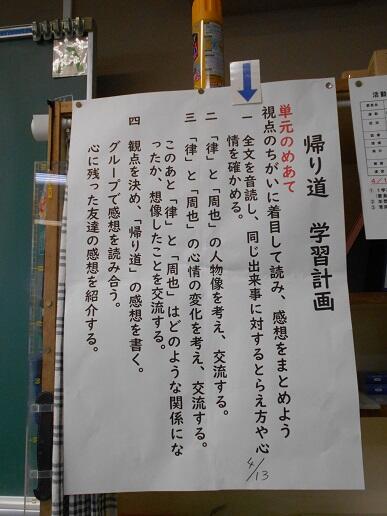 帰り道　学習計画
単元のめあて
視点のちがいに着目して読み、感想をまとめよう
一　全文を音読し、同じ出来事に対するとらえ方や心
情を確かめる。
4/13
二　「律」と「周也」の人物像を考え、交流する。
三　「律」と「周也」の心情の変化を考え、交流する。
このあと「律」と「周也」はどのような関係にな
ったか、想像したことを交流する。
四　観点を決め、「帰り道」の感想を書く。
グループで感想を読み合う。
心に残った友達の感想を紹介する。